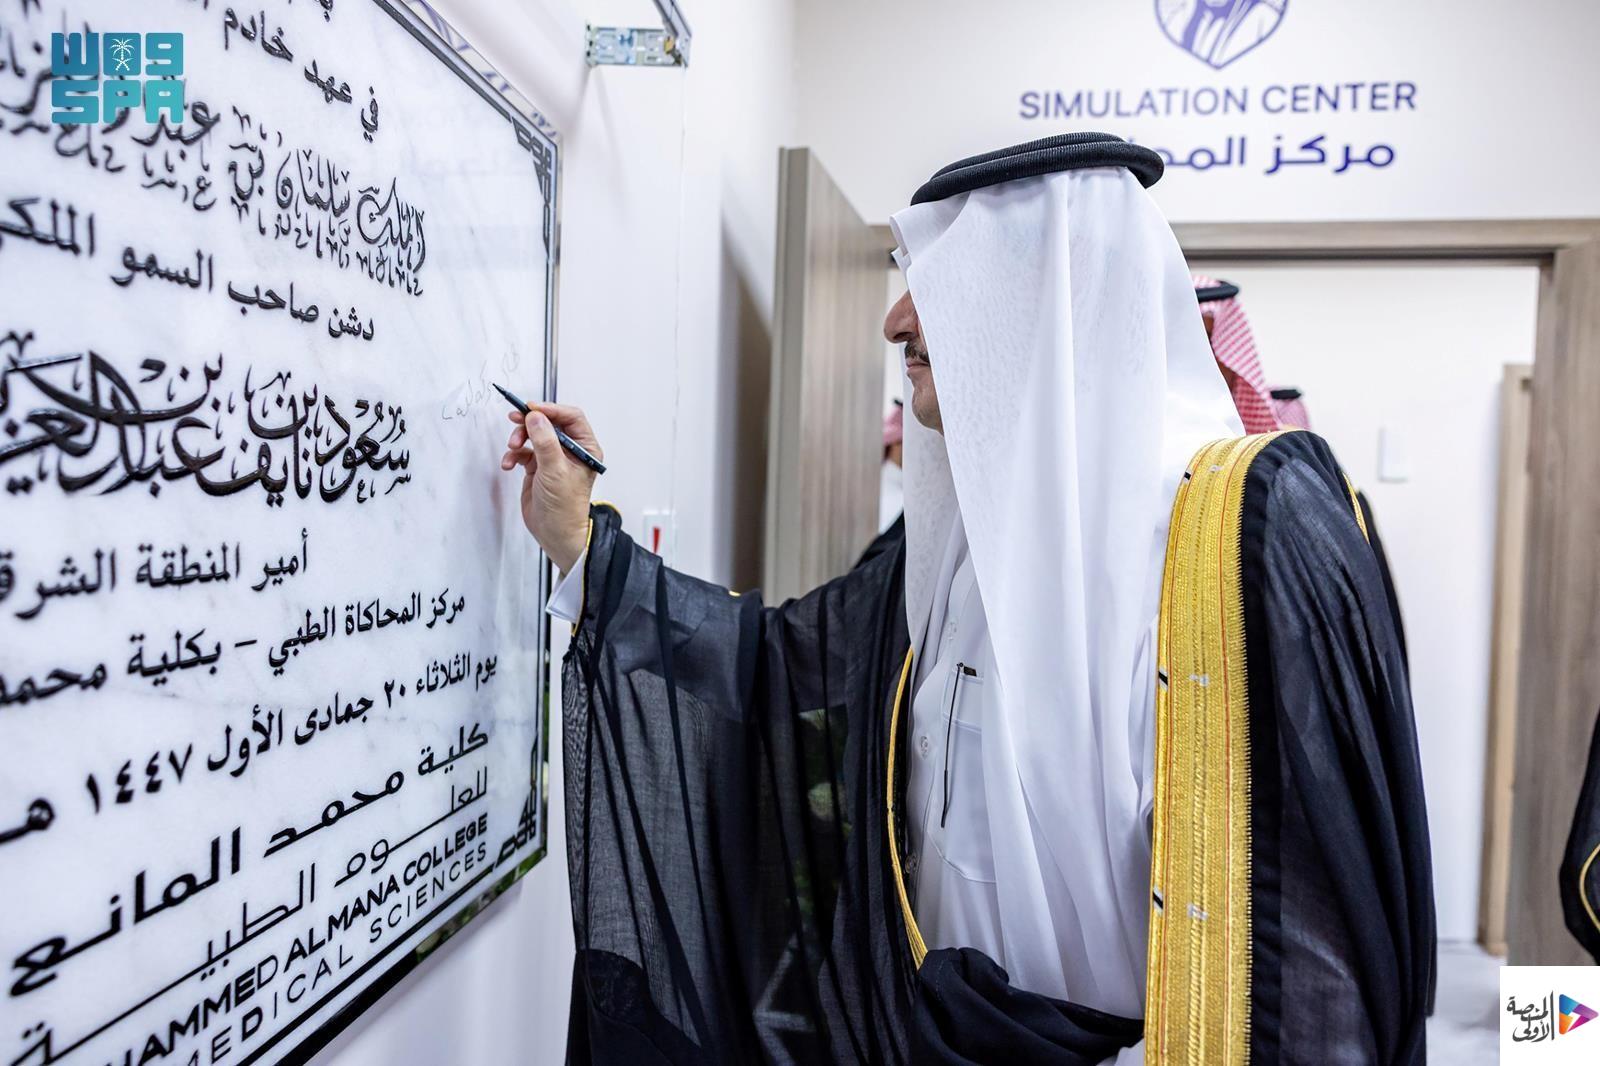 واس
SPA
في عهد خادم
الملك سلمان بن عبدالعزيز
دشن صاحب السمو الملكي
سعود بن نايف بن عبدالعزيز
أمير المنطقة الشرق
مركز المحاكاة الطبي - بكلية محمد
يوم الثلاثاء ٢٠ جمادى الأول ١٤٤٧ هـ
كلية محمد المانع
للعلوم الطبية
MOHAMMED ALMANA COLLEGE
MEDICAL SCIENCES
SIMULATION CENTER
مركز
المنصة
الأولى